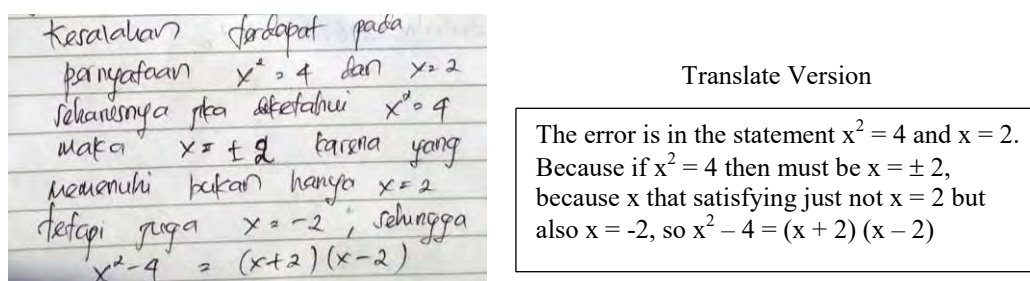 Kesalahan terdapat pada
pernyataan x² = 4 dan x = 2
seharusnya jika diketahui x² = 4
maka x = ± 2 karena yang
memenuhi bukan hanya x = 2
tetapi juga x = -2, sehingga
x² - 4 = (x+2) (x-2)
Translate Version
The error is in the statement x² = 4 and x = 2.
Because if x² = 4 then must be x = ± 2,
because x that satisfying just not x = 2 but
also x = -2, so x² – 4 = (x + 2) (x – 2)